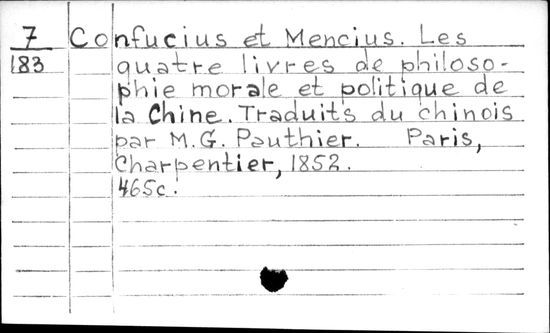 7 Confucius et Mencius. Les
183 quatre livres de philoso-
phie morale et politique de
la Chine. Traduits du chinois
par M.G. Pauthier. Paris,
Charpentier, 1852.
465c.